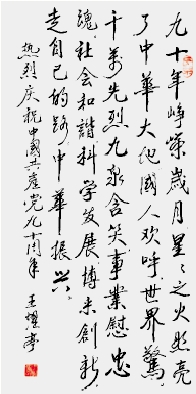 九十年峥嵘岁月星星之火照亮
了中华大地国人欢呼世界驚
千万先烈九泉含笑事業慰忠
魂社会和諧科学发展博来創新
走自己的路中华振兴
热烈庆祝中國共產党九十周年
王